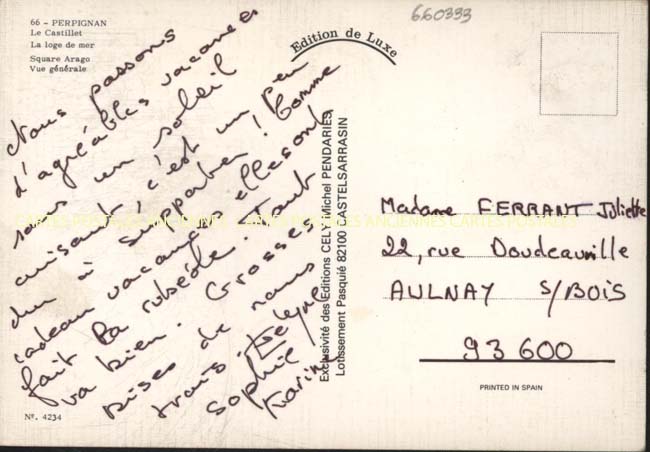 66 - PERPIGNAN
Le Castillet
La loge de mer
Square Arago
Vue générale
660333
Edition de Luxe
Nous passons
d'agréables vacances
sous un soleil
cuisant, c'est un peu
dur à supporter! Comme
cadeau vacances, elles ont
fait la rubéole. Tout
va bien. Grosses
bises de nous
trois.
Sophie
Karine
Exclusivité des Editions CELY Michel PENDARIES
Lotissement Pasquié 82100 CASTELSARRASIN
Madame FERRANT Juliette
22, rue Doudeauville
AULNAY S/BOIS
93600
PRINTED IN SPAIN
Nº. 4234